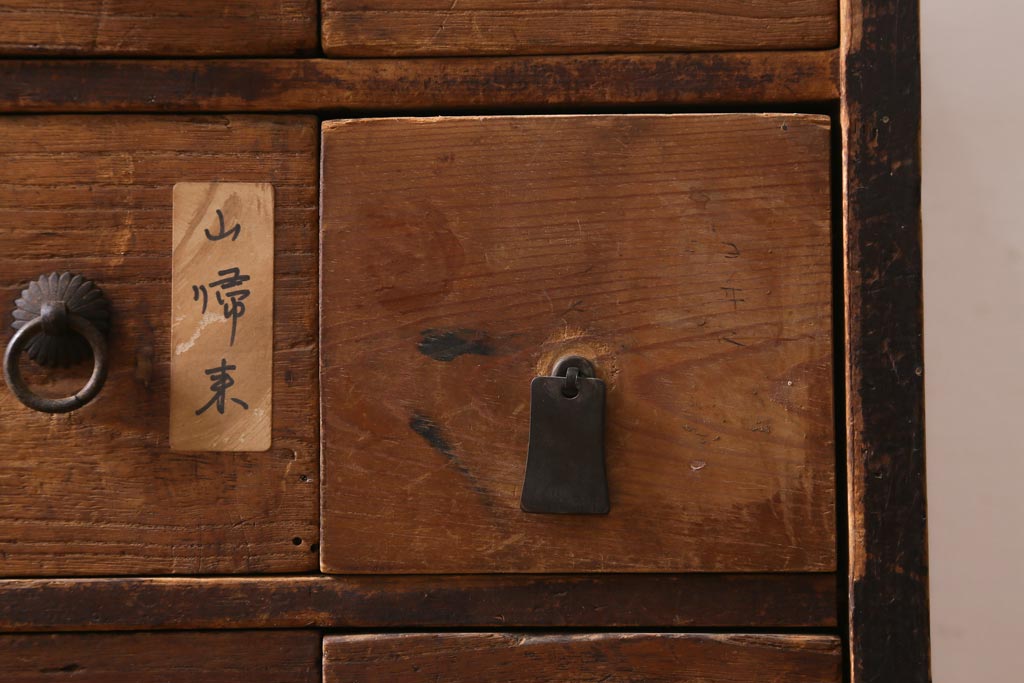 山帰来